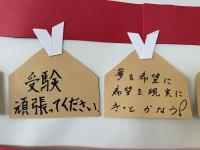 受験
頑張ってください。
夢を希望に
希望を現実に
きっとかなう